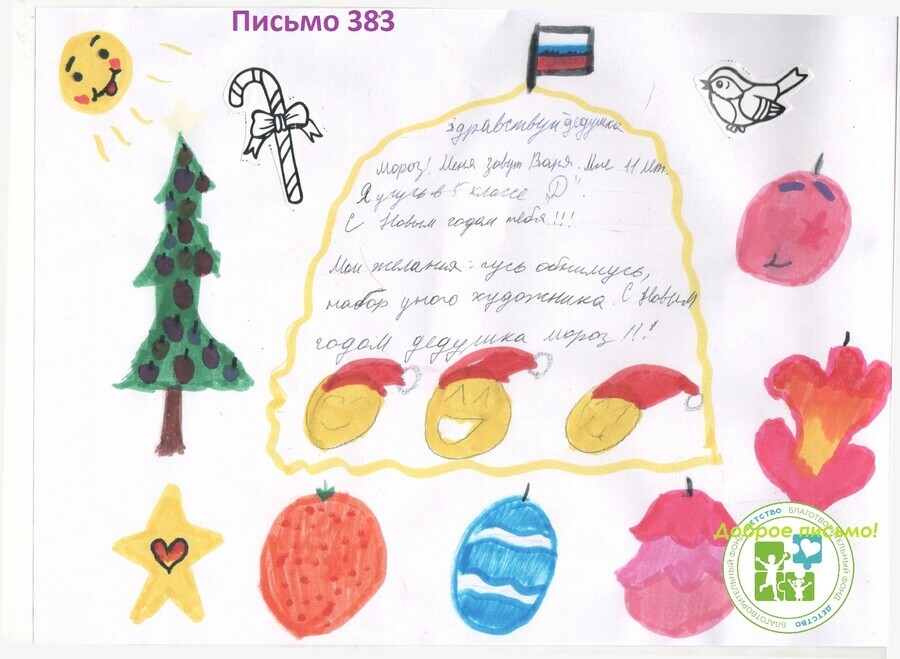 Письмо 383
Здравствуй дедушка
Мороз! Меня зовут Варя. Мне 11 лет.
Я учусь в 5 классе „D".
С Новым годам тебя!!!
Мои желания: гусь обнимусь,
набор юного художника. С Новым
годом дедушка мороз!!!
Доброе письмо!
БЛАГОТВОРИТЕЛЬНЫЙ ФОНД ДЕТСТВО БЛАГОТВОРИТЕЛЬНЫЙ ФОНД ДЕТСТВО